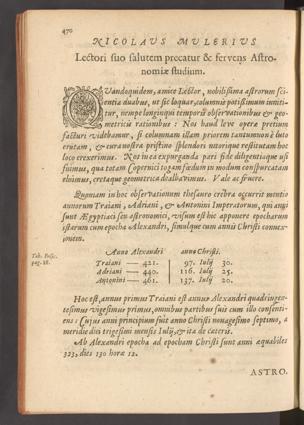 470
NICOLAVS MVLERIVS
Lectori suo salutem precatur & fervens Astro-
nomiæ studium.
QVandoquidem, amice Lector, nobilissima astrorum sci-
entia duabus, ut sic loquar, columnis potissimum inniti-
tur, nempe longinqui temporis observationibus & geo-
metricis rationibus: Nos haud leve opera pretium
facturi videbamur, si columnam illam priorem tantummodo è luto
erutam, & curâ nostrâ pristino splendori nitorique restitutam hoc
loco erexerimus. Nos in ea expurganda pari fide diligentiaque usi
fuimus, qua totam Copernici togam fœdum in modum conspurcatam
eluimus, cretaque geometrica dealbavimus. Vale ac fruere.
Quoniam in hoc observationum thesauro crebra occurrit mentio
annorum Traiani, Adriani, & Antonini Imperatorum, qui anni
sunt Ægyptiaci seu astronomici, visum est hic apponere epocharum
istarum cum epocha Alexandri, simulque cum annis Christi connex-
ionem.
Anno Alexandri anno Christi.
Tab. Posic. pag. 28.
Traiani — 421. 97. Iulij 30.
Adriani — 440. 116. Iulij 25.
Antonini — 461. 137. Iulij 20.
Hoc est, annus primus Traiani est annus Alexandri quadringex-
tesimus vigesimus primus, omnibus partibus suis cum illo consenti-
ens: Cujus anni principium fuit anno Christi nonagesimo septimo, a
meridie diei trigesimi mensis Iulij, & ita de cæteris.
Ab Alexandri epocha ad epocham Christi sunt anni æquabiles
323, dies 130 horæ 12.
ASTRO.